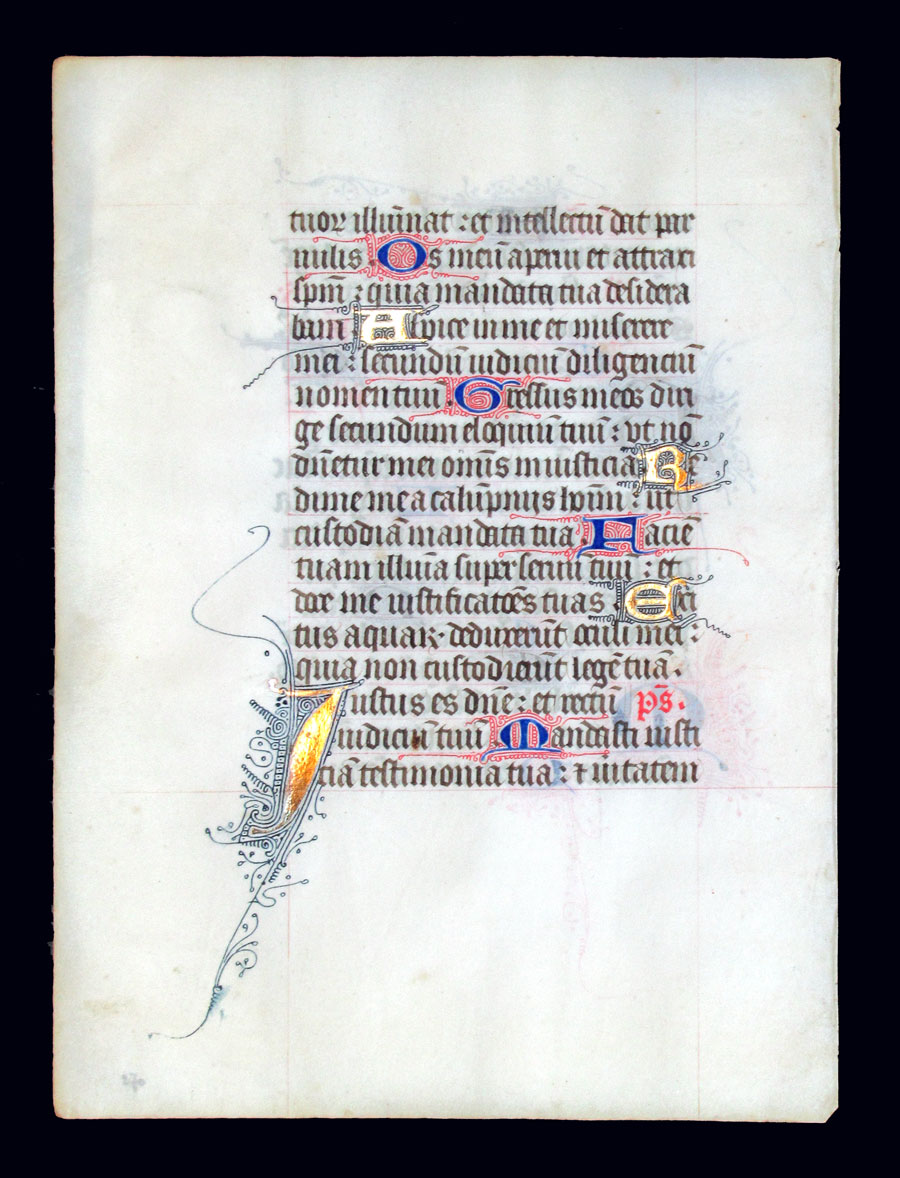 tuoꝝ illūinat : et intellectū dat par
uulis Os meū aperui et attraxi
spm̄ : quia mandata tua desidera
bam Aspice in me et miserere
mei : secundū iudiciū diligenciū
nomen tuū Gressus meos diri
ge secundum eloquiū tuū : ut nō
dn̄etur mei omīs iniusticia Re
dime me a calūpniis hoīm : ut
custodiā mandata tua Faciē
tuam illūīa super seruū tuū : et
doce me iustificatōes tuas Exi
tus aquaꝝ deduxerūt oculi mei :
quia non custodierūt legē tuā .
Iustus es dn̄e : et rectū p̄s .
iudiciū tuū Mandasti iusti
ciā testimonia tua : ⁊ ūitatem
270